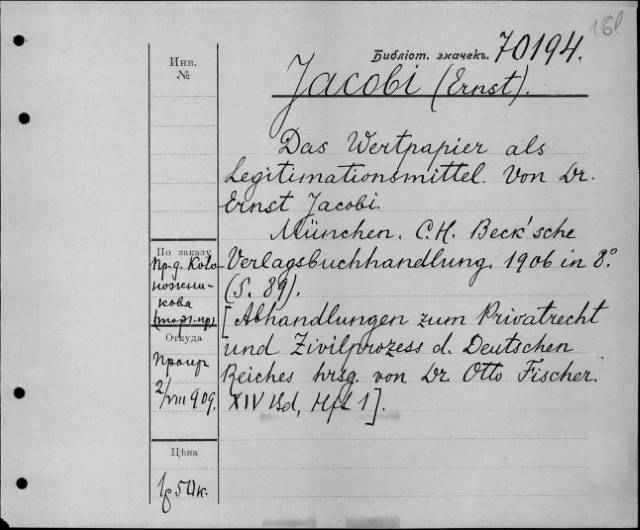 Инв.
№
Библіот. значекъ. 70194.
Jacobi (Ernst).
Das Wertpapier als
Legitimationsmittel. Von Dr.
Ernst Jacobi.
München. C.H. Beck'sche
Verlagsbuchhandlung. 1906 in 8°.
(S. 89).
[Abhandlungen zum Privatrecht
und Zivilprozess d. Deutschen
Reiches hrsg. von Dr Otto Fischer.
XIV Bd, Hft 1].
По заказу
пр-д. Коло-
ножни-
кова
Откуда
2/VIII 909.
Цѣна
1р 50к.